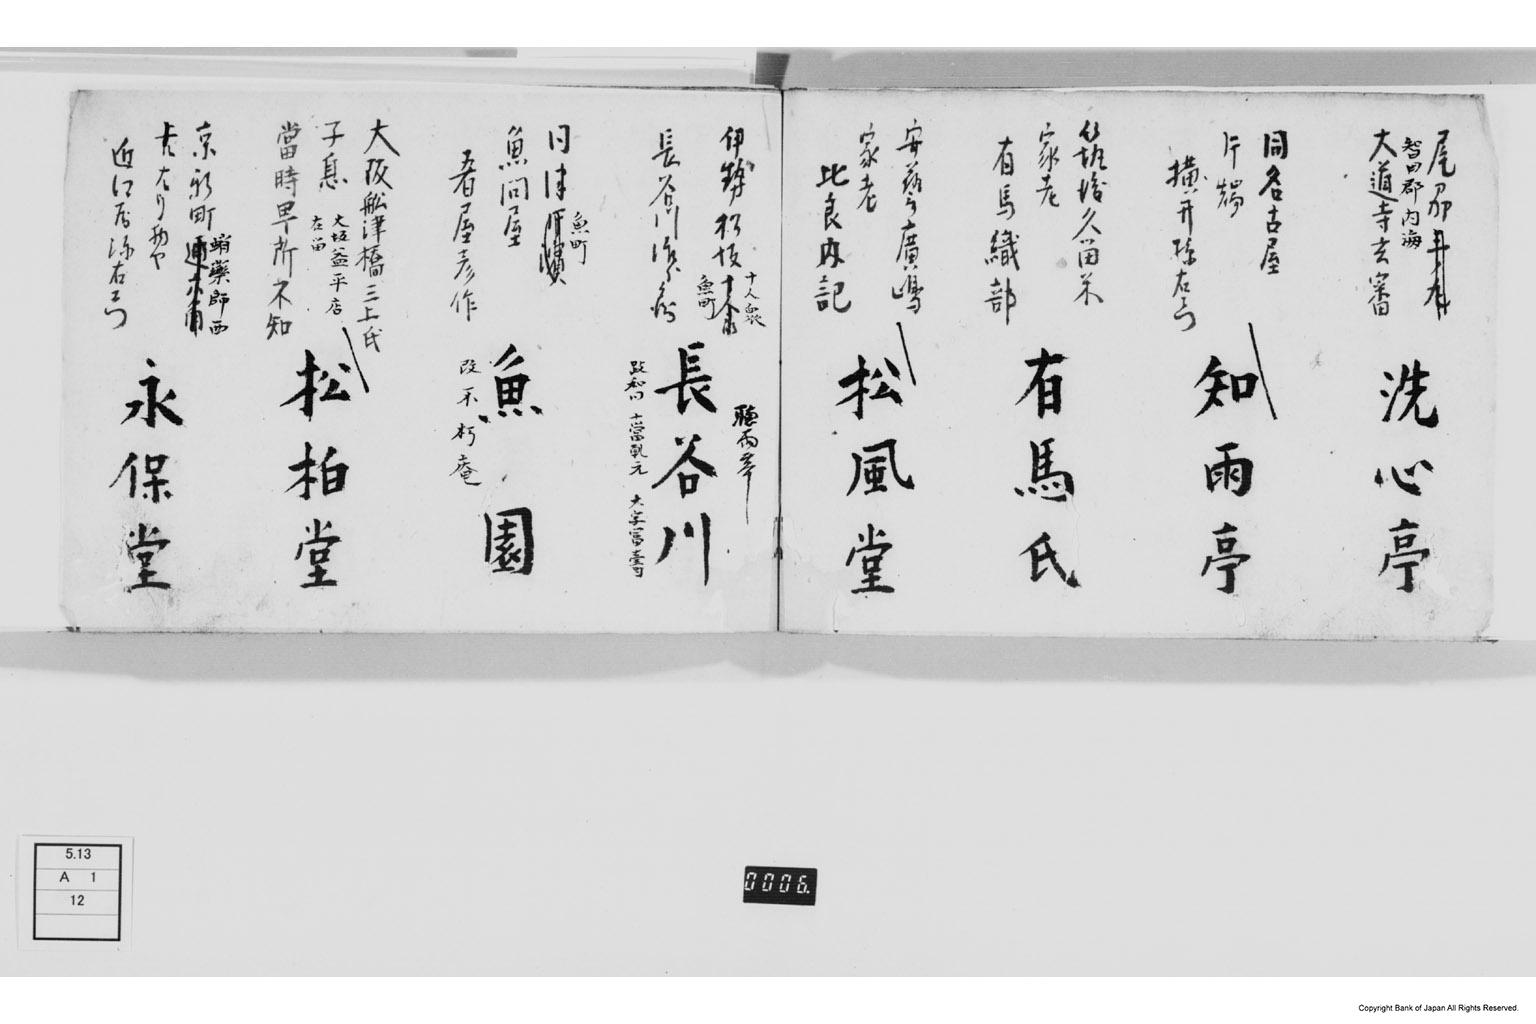 尾州
智田郡内海
大道寺玄審
洗心亭
同名古屋
片端
横井孫右衛門
知雨亭
筑後久留米
家老
有馬織部
有馬氏
安藝廣嶋
家老
比良内記
松風堂
伊勢松坂
十人衆
魚町
長谷川治郎
聴雨亭
長谷川
改和同
大字富壽
魚町
魚問屋
肴屋彦作
魚園
改不朽庵
大阪舩津橋三上氏
子息
大坂益平店
在留
當時早所不知
松柏堂
京新町
蛸藥師西
近江屋弥右衛門
永保堂
5.13
A 1
12
0006
Copyright Bank of Japan All Rights Reserved.